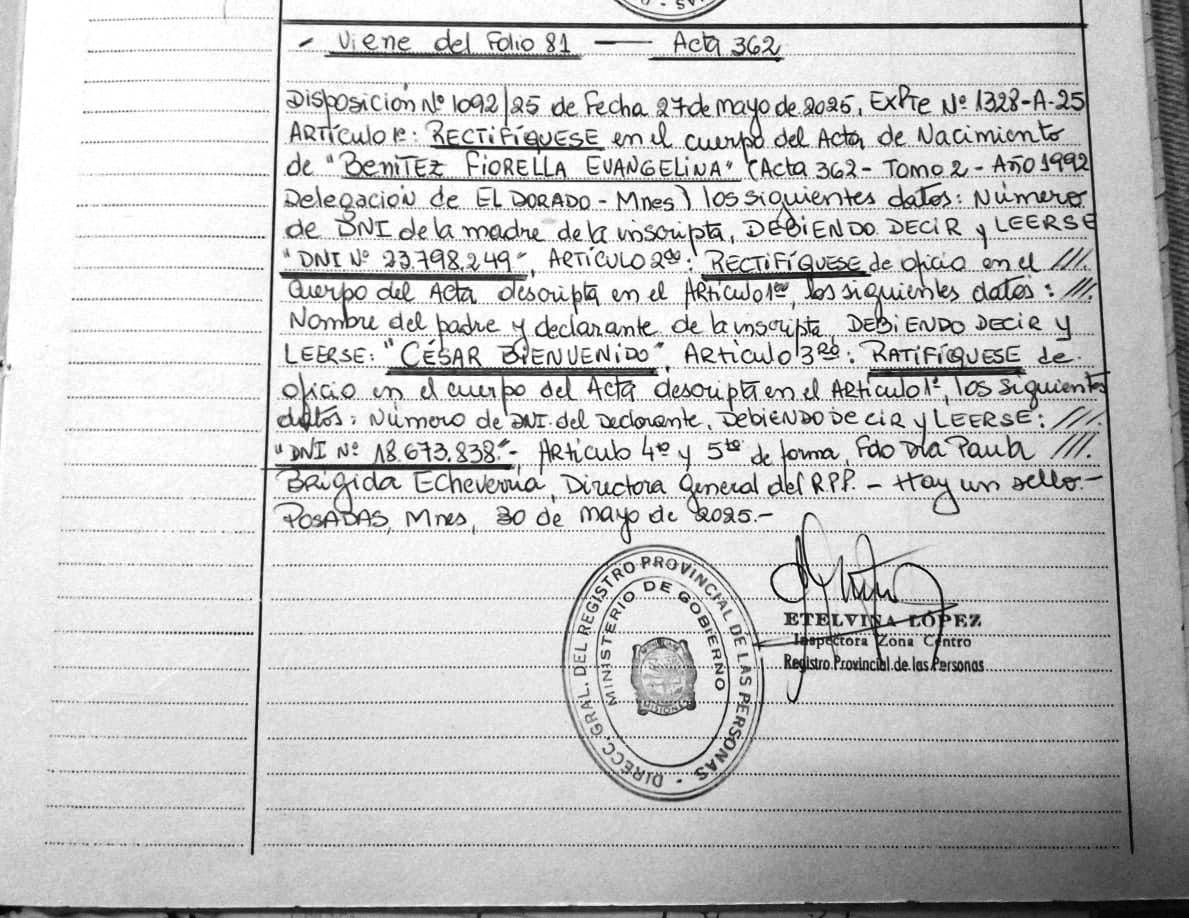 - Viene del Folio 81 — Acta 362
Disposición Nº 1092/25 de Fecha 27 de mayo de 2025, ExpTe Nº 1328-A-25
ARTículo 1º: RECTIFÍQUESE en el cuerpo del Acta de Nacimiento
de "BENITEZ FIORELLA EVANGELINA" (Acta 362 - Tomo 2 - Año 1992
Delegación de EL DORADO - Mnes) los siguientes datos: Número
de DNI de la madre de la inscripta, DEBIENDO DECIR y LEERSE
"DNI Nº 23.798.249", ARTÍCULO 2do: RECTIFÍQUESE de oficio en el ///.
Cuerpo del Acta descripta en el ARtículo 1ro, los siguientes datos: ///.
Nombre del padre y declarante de la inscripta, DEBIENDO DECIR y
LEERSE: "CÉSAR BIENVENIDO", ARTículo 3RO: RATIFÍQUESE de
oficio en el cuerpo del Acta descripta en el ARtículo 1º, los siguientes
datos: Número de DNI del Declarante, DEBIENDO DECIR y LEERSE: ///.
"DNI Nº 18.673.838.-", ARtículo 4to y 5to de forma, Fdo Dra Paula ///.
Brígida Echeverria, Directora General del R.P.P. - Hay un sello.-
POSADAS, Mnes, 30 de mayo de 2025.-
DIRECC. GRAL. DEL REGISTRO PROVINCIAL DE LAS PERSONAS
MINISTERIO DE GOBIERNO
MISIONES
ETELVINA LÓPEZ
Inspectora Zona Centro
Registro Provincial de las Personas